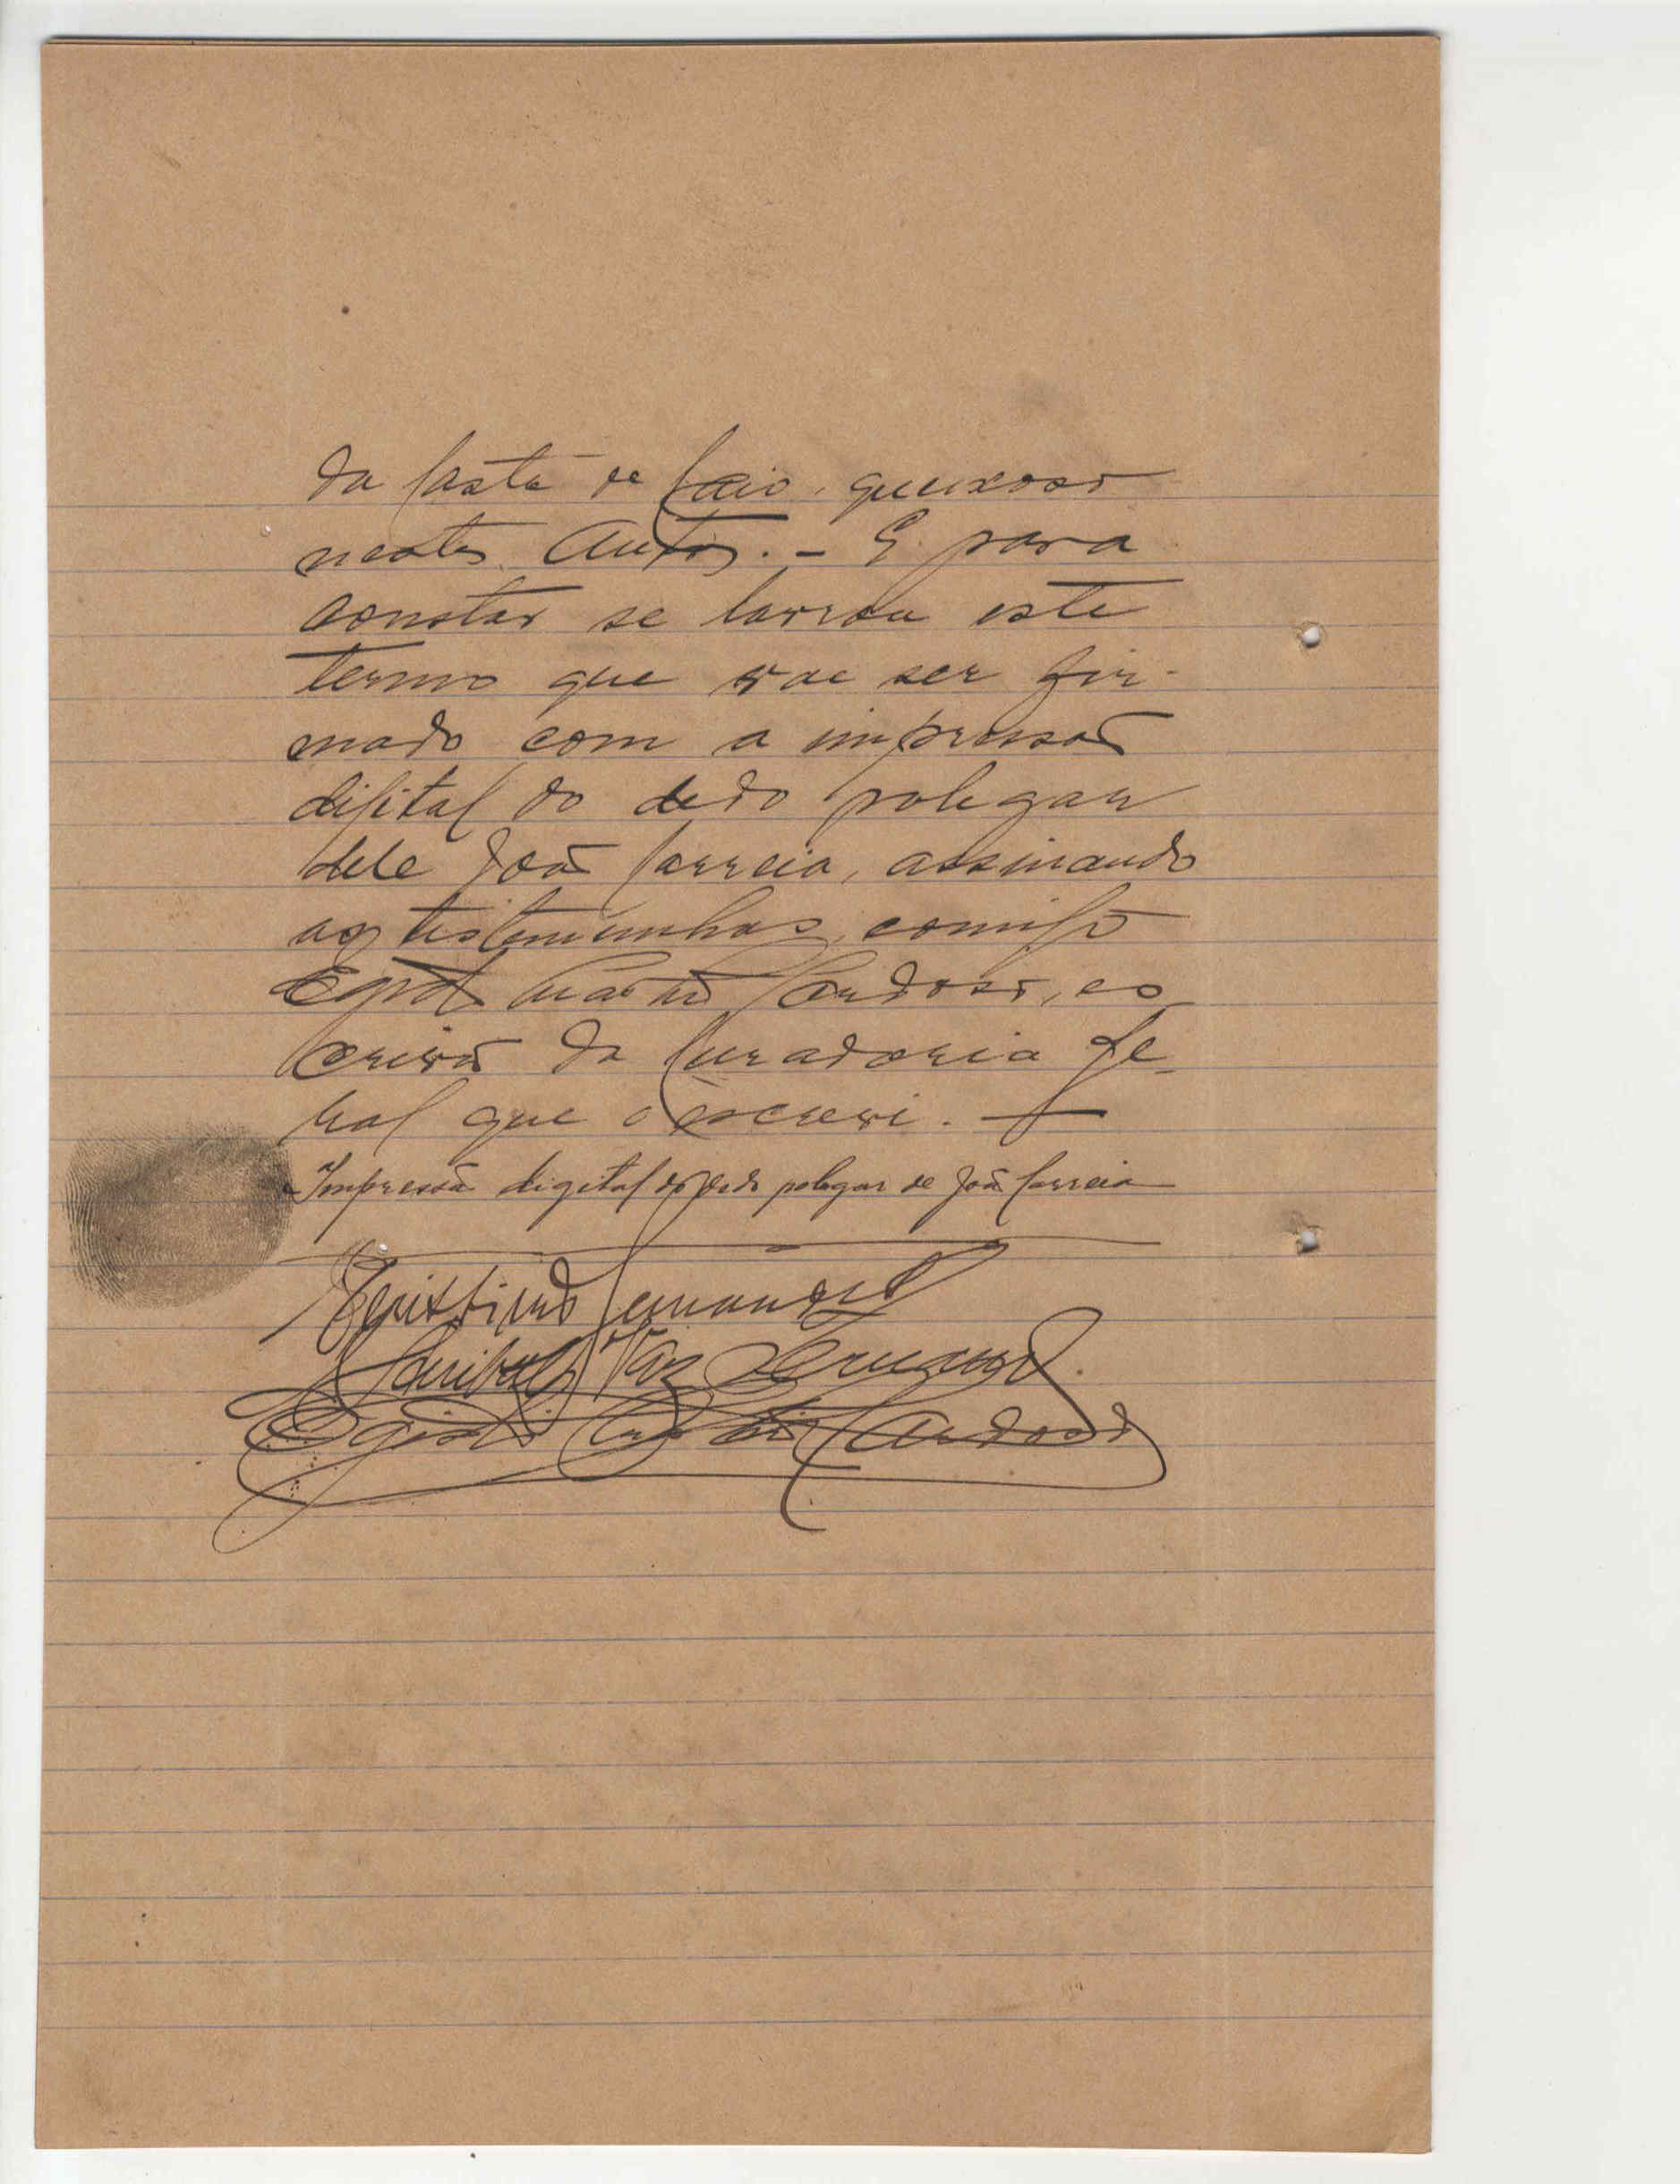 da Casta de Caio, queixoso
nestes Autos. - E para
constar se lavrou este
termo que vae ser fir-
mado com a impressão
dijital do dedo polegar
dele João Correia, assinando
as testemunhas comigo
Cardoso, es
crivão da Curadoria Ge-
ral que o escrevi.
Impressão digital do dedo polegar de João Correia
Fernandes
Vaz Fernandes
Cardoso